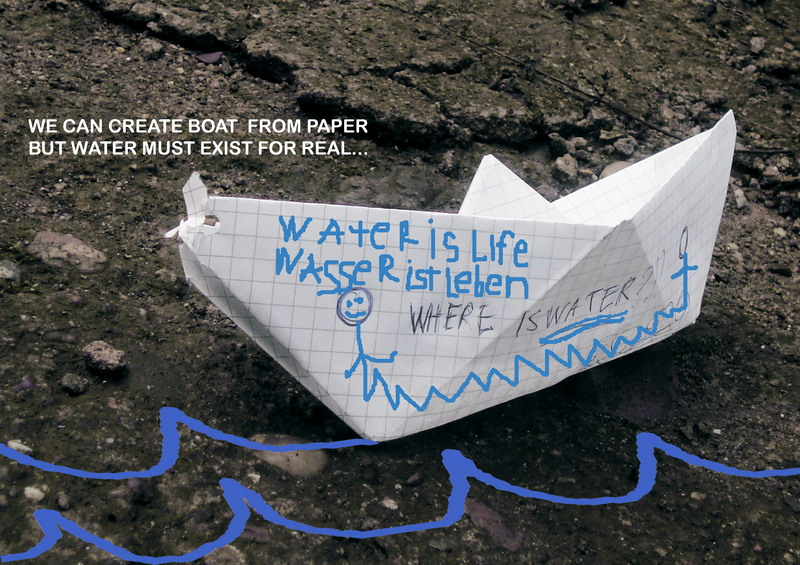 WE CAN CREATE BOAT FROM PAPER
BUT WATER MUST EXIST FOR REAL...
WAteR is Life
WASSeR ist Leben
WHERE IS WATER?!!